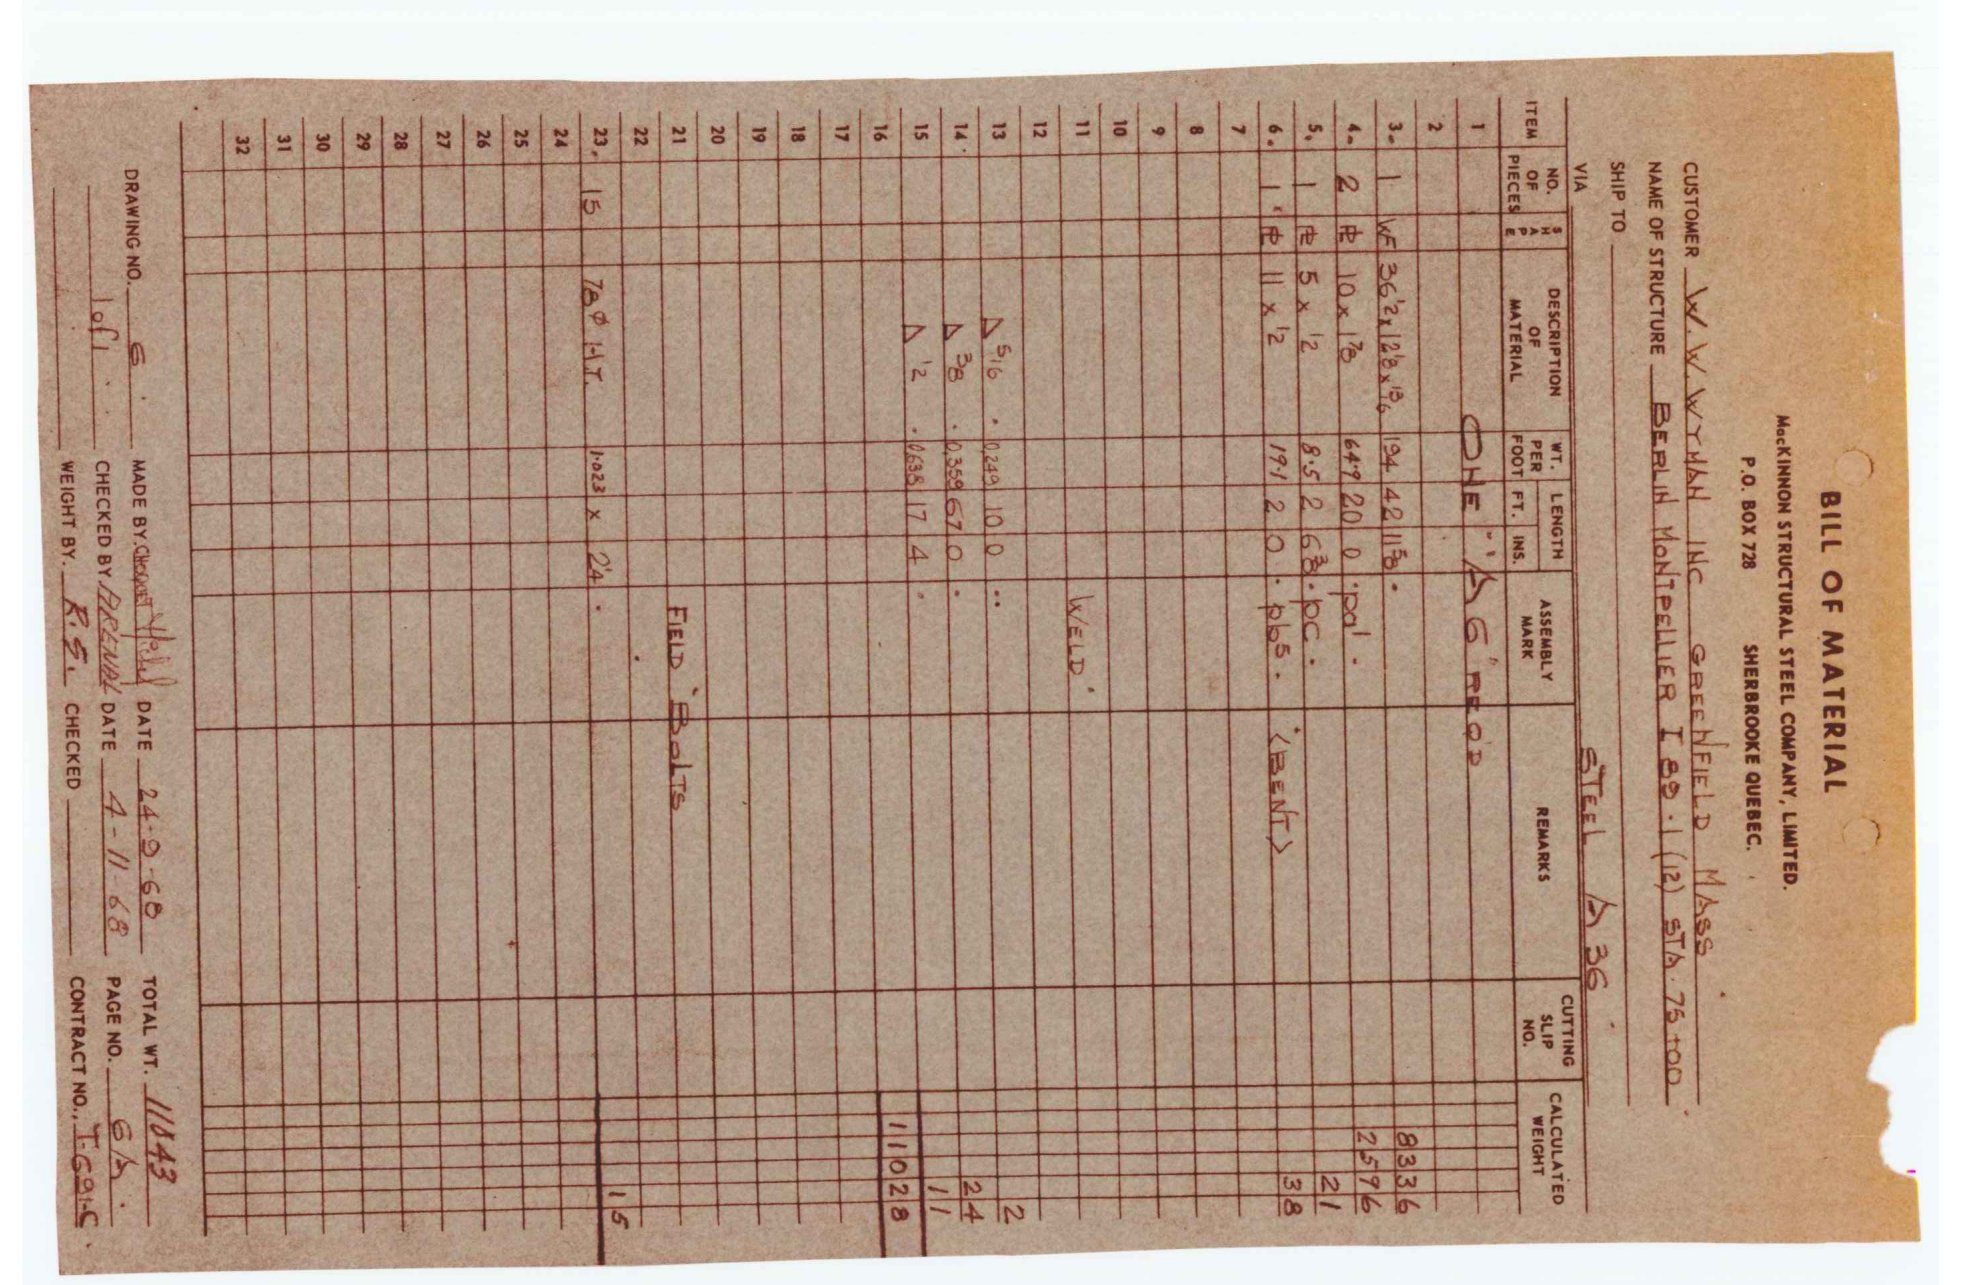 BILL OF MATERIAL
MacKINNON STRUCTURAL STEEL COMPANY, LIMITED.
P.O. BOX 728 SHERBROOKE QUEBEC.
CUSTOMER W. W. WYMAN INC GREENFIELD MASS
NAME OF STRUCTURE BERLIN MONTPELLIER I 89-1 (12) STA. 75+00
SHIP TO
VIA STEEL A 36
ITEM NO. OF PIECES SHAPE DESCRIPTION OF MATERIAL WT. PER FOOT LENGTH FT. INS. ASSEMBLY MARK REMARKS CUTTING SLIP NO. CALCULATED WEIGHT
1 ONE "A6" REQD
2
3. 1 WF 36 1/2 x 12 1/8 x 13/16 194 42 11 5/8 8336
4. 2 PL 10 x 1 7/8 64.9 20 0 pa1 2596
5. 1 PL 5 x 1/2 8.5 2 6 3/8 pc 21
6. 1 PL 11 x 1/2 19.1 2 0 pb5 (BENT) 38
7
8
9
10
11 WELD
12
13 △ 5/16 0.249 10 0 2
14 △ 3/8 0.359 67 0 24
15 △ 1/2 0.638 17 4 11
16 11028
17
18
19
20
21 FIELD BOLTS
22
23. 15 7/8 ø H.T. 1.023 x 2 1/4 15
24
25
26
27
28
29
30
31
32
DRAWING NO. 6 MADE BY. DATE 24-9-68 TOTAL WT. 11043
1 of 1 CHECKED BY DATE 4-11-68 PAGE NO. 6A
WEIGHT BY. R.S. CHECKED CONTRACT NO. T-691-C